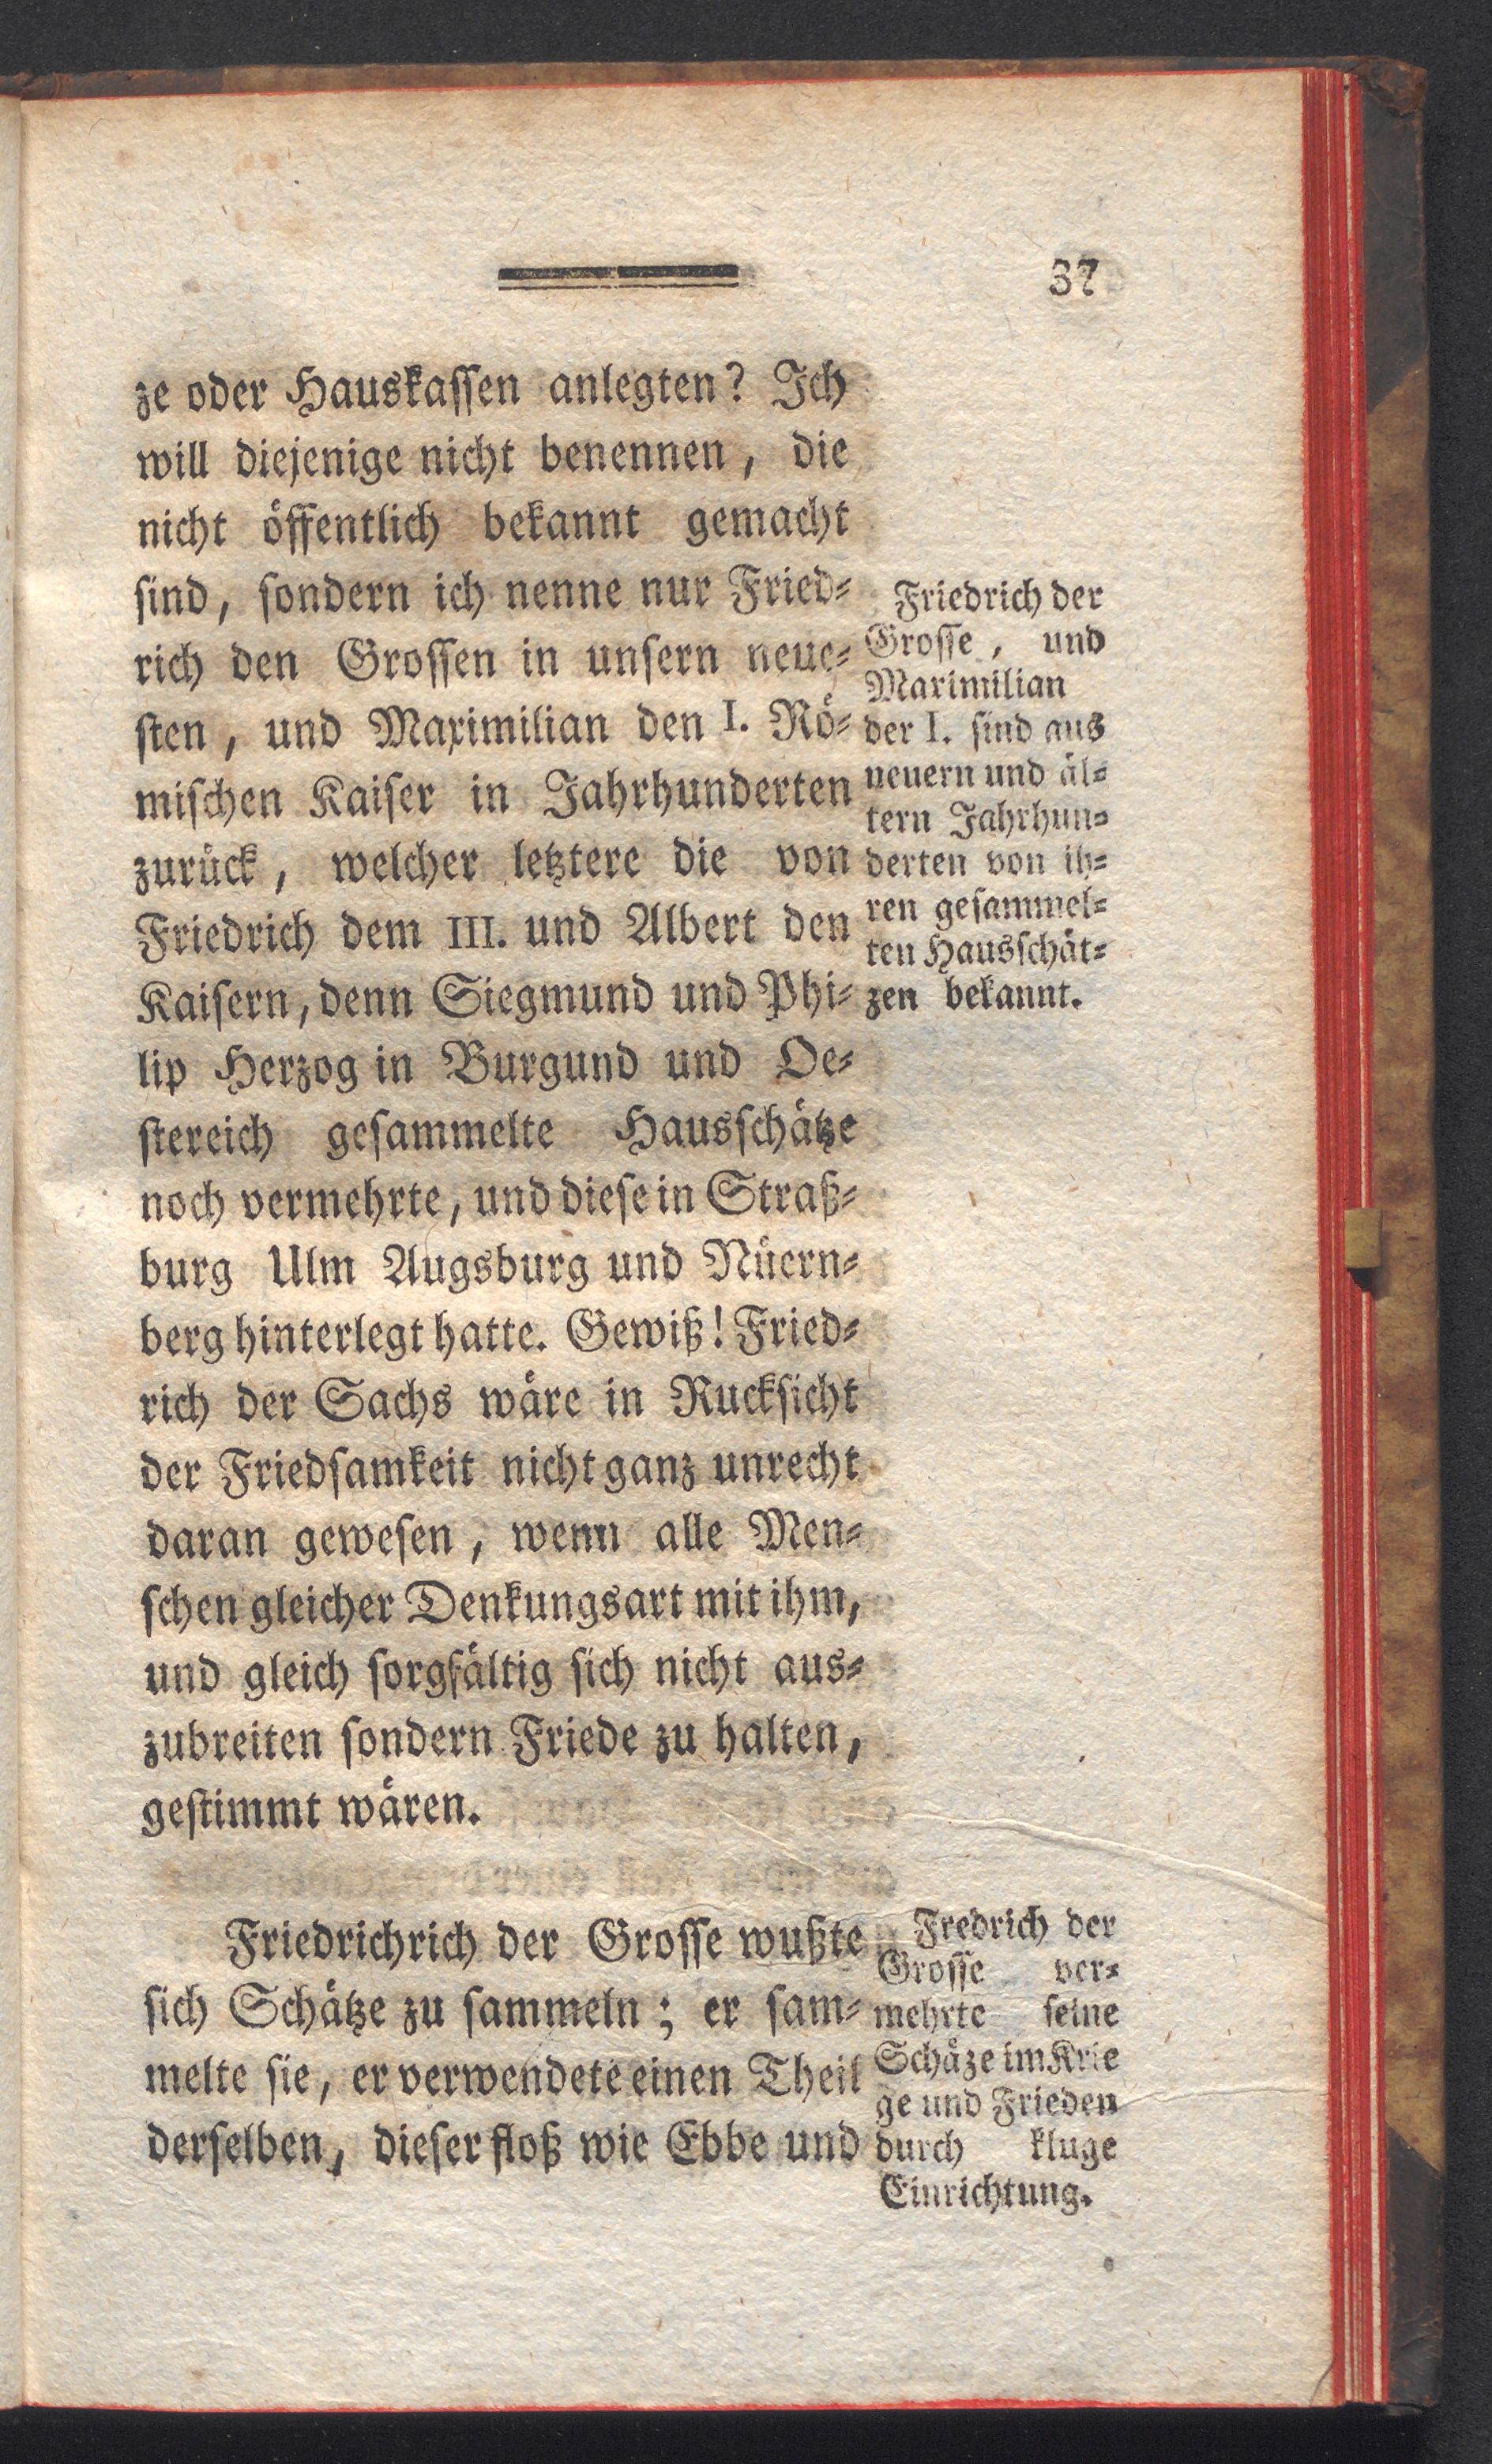 37
ze oder Hauskassen anlegten? Ich
will diejenige nicht benennen, die
nicht öffentlich bekannt gemacht
sind, sondern ich nenne nur Fried-
rich den Grossen in unsern neue-
sten, und Maximilian den I. Rö-
mischen Kaiser in Jahrhunderten
zurück, welcher letztere die von
Friedrich dem III. und Albert den
Kaisern, denn Siegmund und Phi-
lip Herzog in Burgund und Oe-
stereich gesammelte Hausschätze
noch vermehrte, und diese in Straß-
burg Ulm Augsburg und Nüern-
berg hinterlegt hatte. Gewiß! Fried-
rich der Sachs wäre in Rucksicht
der Friedsamkeit nicht ganz unrecht
daran gewesen, wenn alle Men-
schen gleicher Denkungsart mit ihm,
und gleich sorgfältig sich nicht aus-
zubreiten sondern Friede zu halten,
gestimmt wären.
Friedrich der
Grosse, und
Maximilian
der I. sind aus
neuern und äl-
tern Jahrhun-
derten von ih-
ren gesammel-
ten Hausschät-
zen bekannt.
Friedrichrich der Grosse wußte
sich Schätze zu sammeln; er sam-
melte sie, er verwendete einen Theil
derselben, dieser floß wie Ebbe und
Fredrich der
Grosse ver-
mehrte seine
Schäze im Krie
ge und Frieden
durch kluge
Einrichtung.